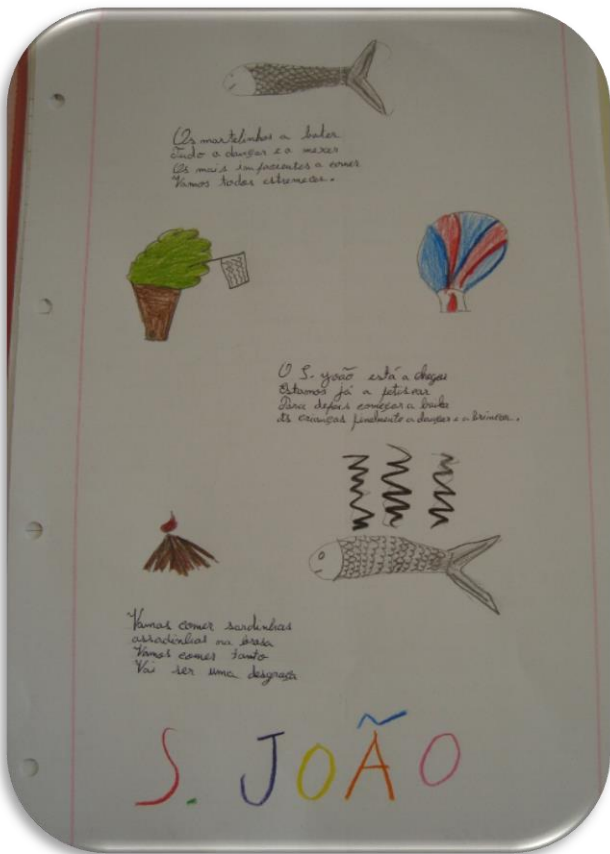 Os martelinhos a bater
Tudo a dançar e a mexer
Os mais impacientes a comer
Vamos todos estremecer.
O S. João está a chegar
Estamos já a petiscar
Para depois começar a
As crianças finalmente a dançar e a brincar.
Vamos comer sardinhas
assadinhas na brasa
Vamos comer tanto
Vai ser uma desgraça
S. JOÃO